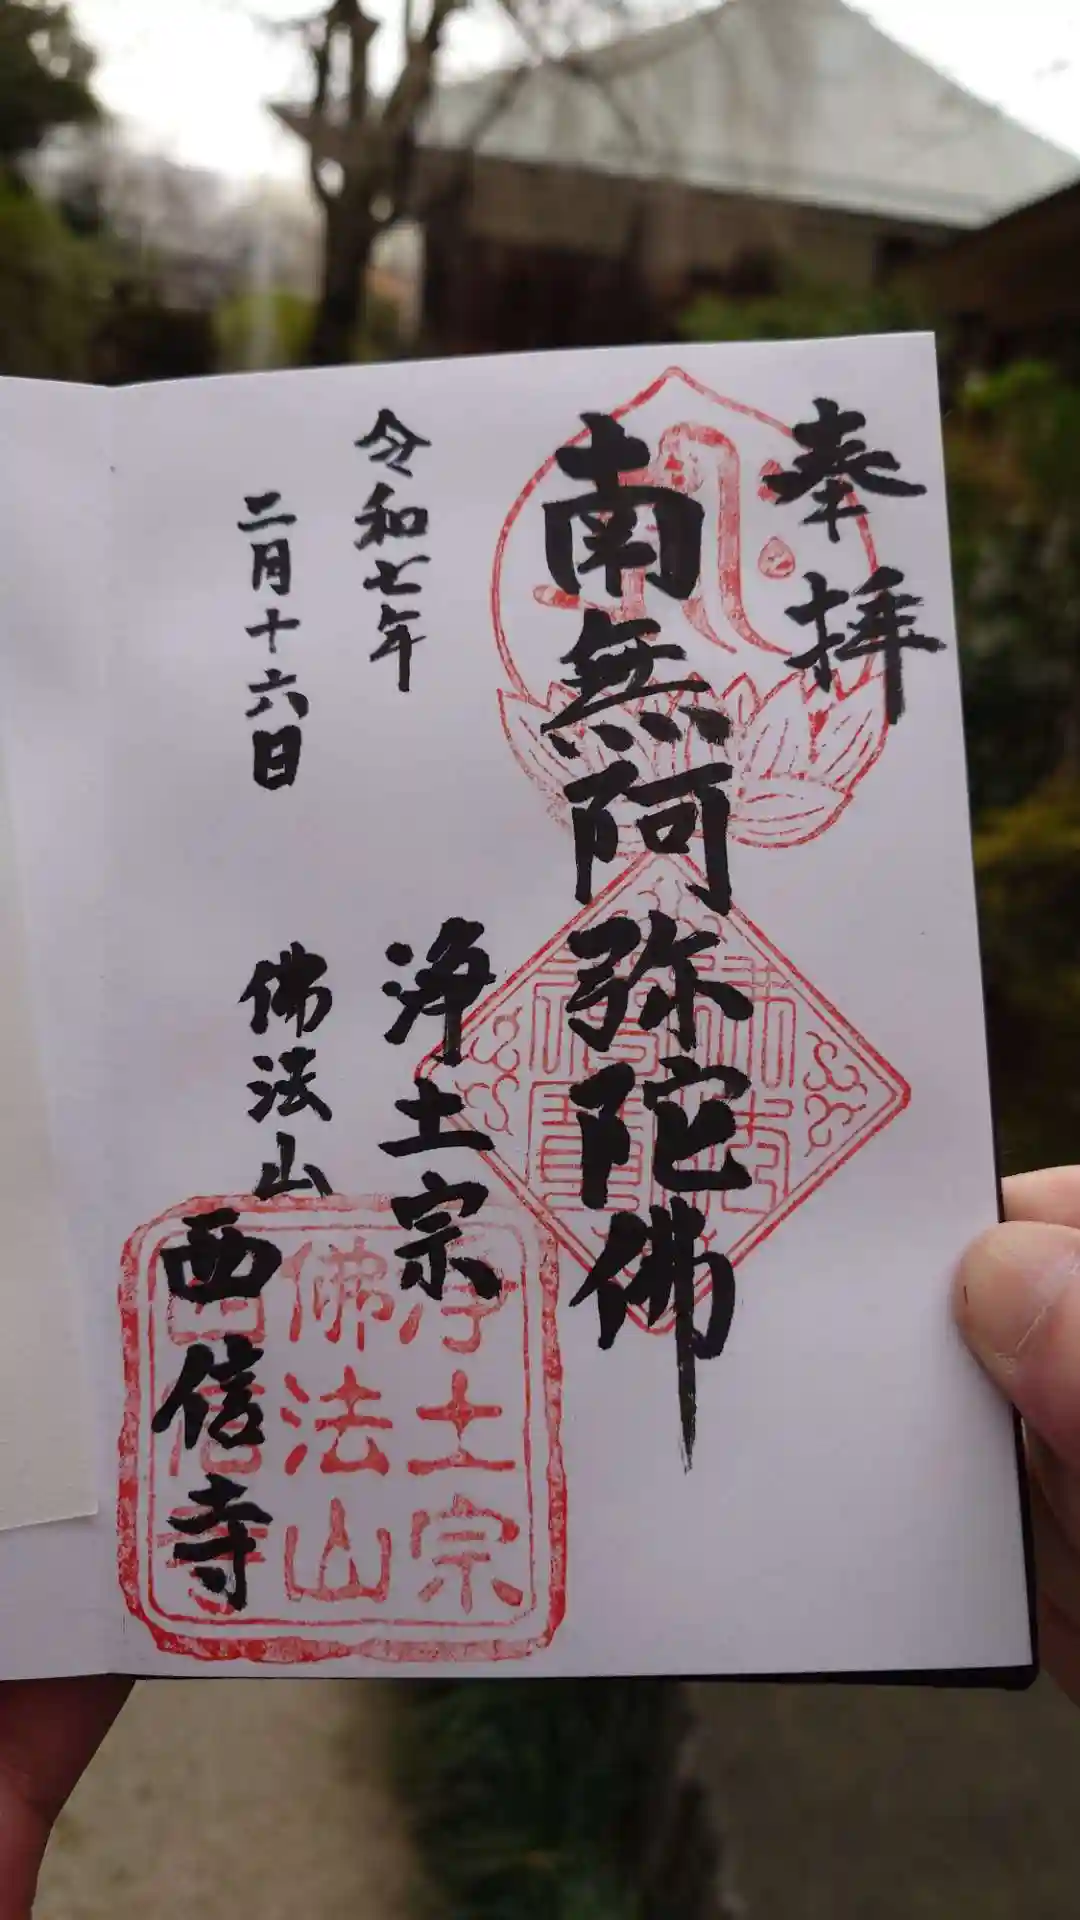 奉拝
南無阿弥陀佛
令和七年
二月十六日
浄土宗
佛法山
西信寺
浄土宗
佛法山
西信寺